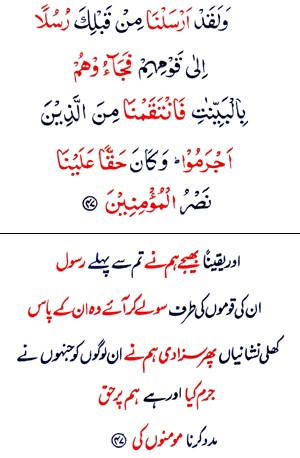 وَلَقَدْ اَرْسَلْنَا مِنْ قَبْلِكَ رُسُلًا
اِلٰى قَوْمِهِمْ فَجَآءُوْهُمْ
بِالْبَيِّنٰتِ فَانْتَقَمْنَا مِنَ الَّذِيْنَ
اَجْرَمُوْا ؕ وَكَانَ حَقًّا عَلَيْنَا
نَصْرُ الْمُؤْمِنِيْنَ ﴿۴۷﴾
اور یقیناً بھیجے ہم نے تم سے پہلے رسول
ان کی قوموں کی طرف سو لے کر آئے وہ ان کے پاس
کھلی نشانیاں پھر سزا دی ہم نے ان لوگوں کو جنہوں نے
جرم کیا اور ہے ہم پر حق
مدد کرنا مومنوں کی ﴿۴۷﴾